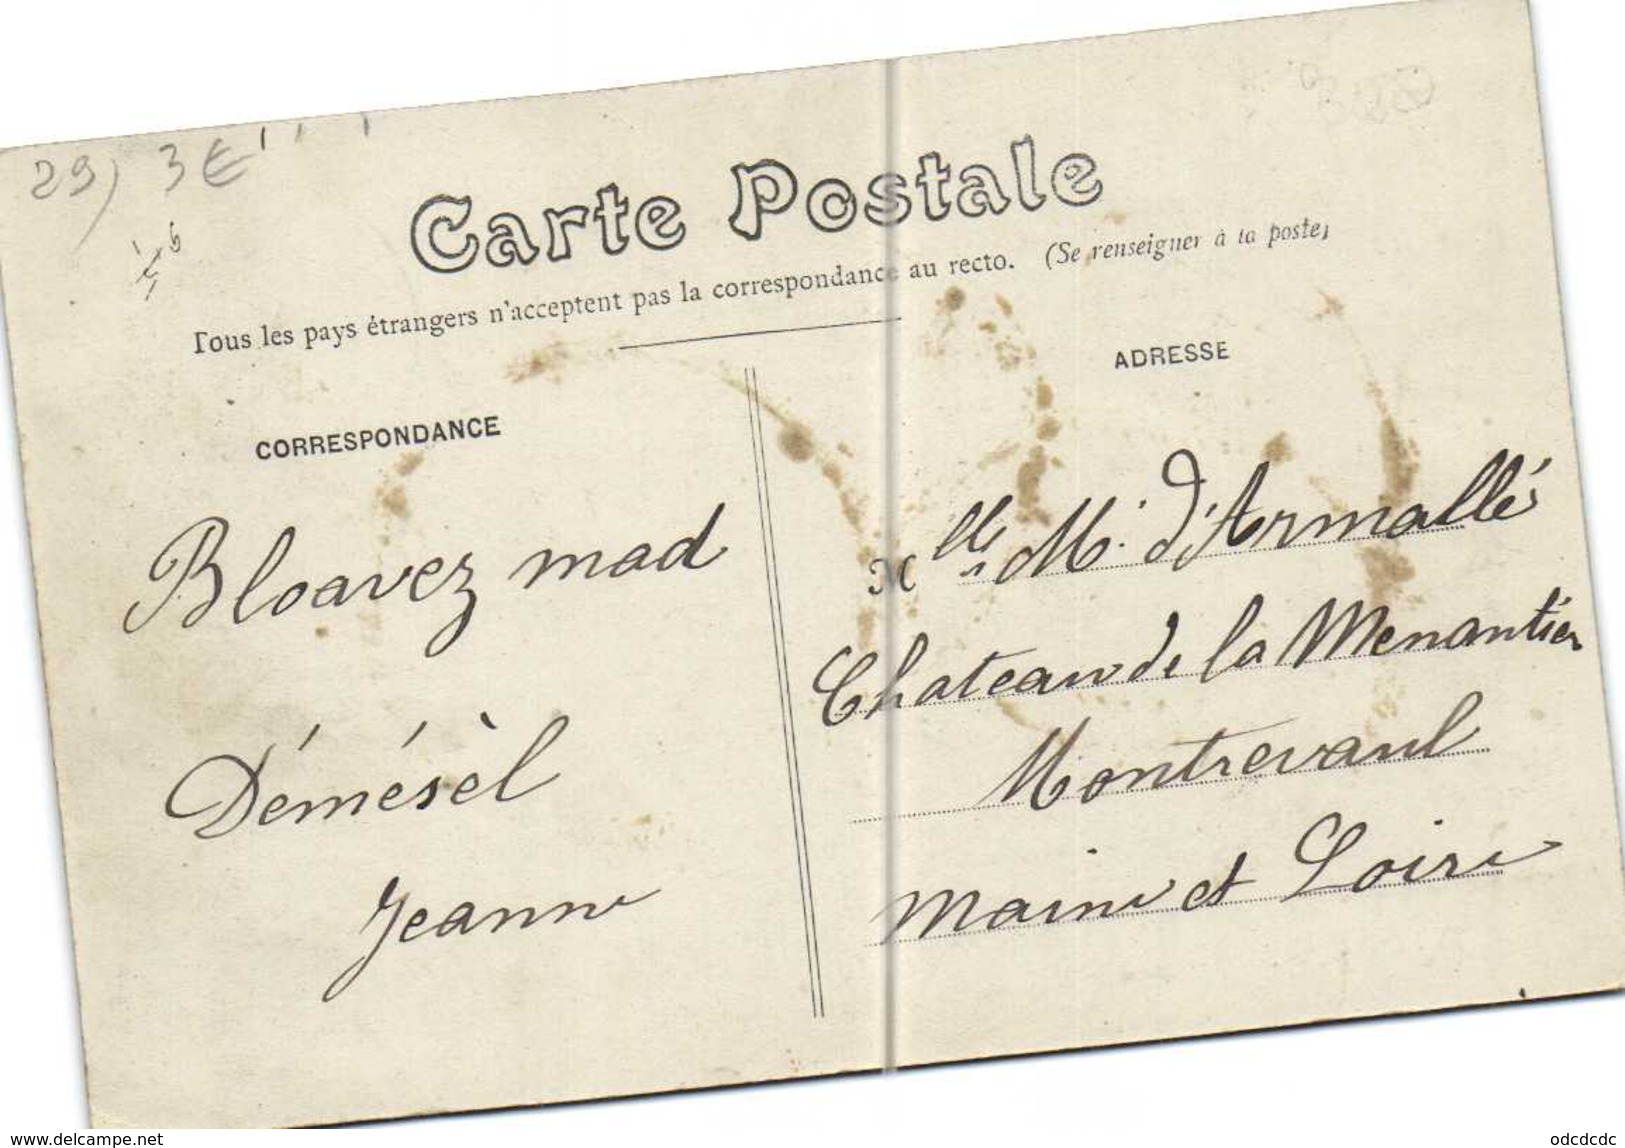 29) 3€
Carte Postale
Tous les pays étrangers n'acceptent pas la correspondance au recto. (Se renseigner à la poste)
CORRESPONDANCE
Bloavez mad
Démésèl
Jeanne
ADRESSE
Mlle M. d'Armaillé
Chateau de la Menantier
Montrevault
Maine et Loire
www.delcampe.net
odcdcdc